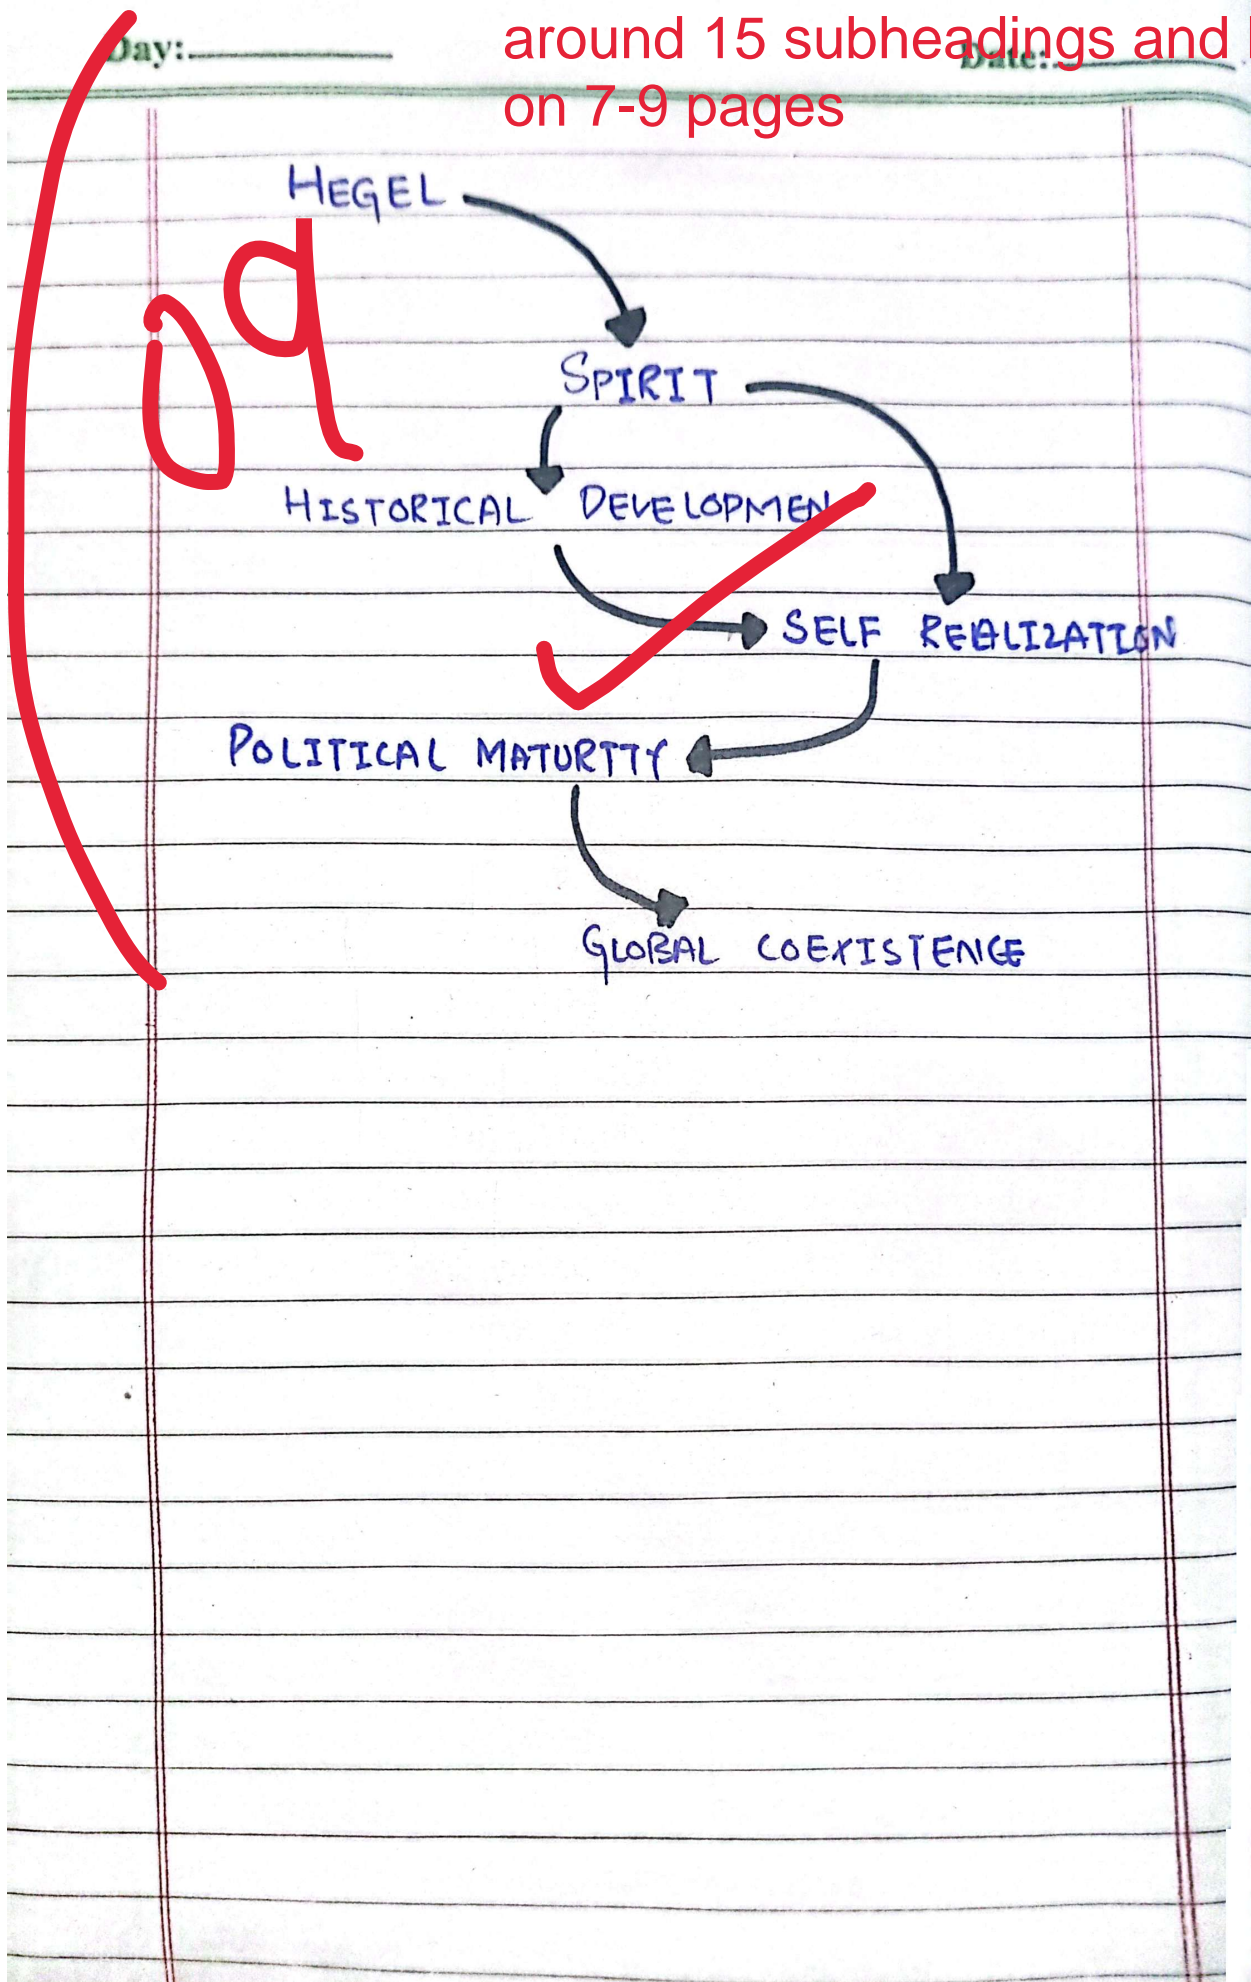 Day:
around 15 subheadings and
Date:
on 7-9 pages
HEGEL
09
SPIRIT
HISTORICAL DEVELOPMEN
SELF REALIZATION
POLITICAL MATURTTY
GLOBAL COEXISTENCE